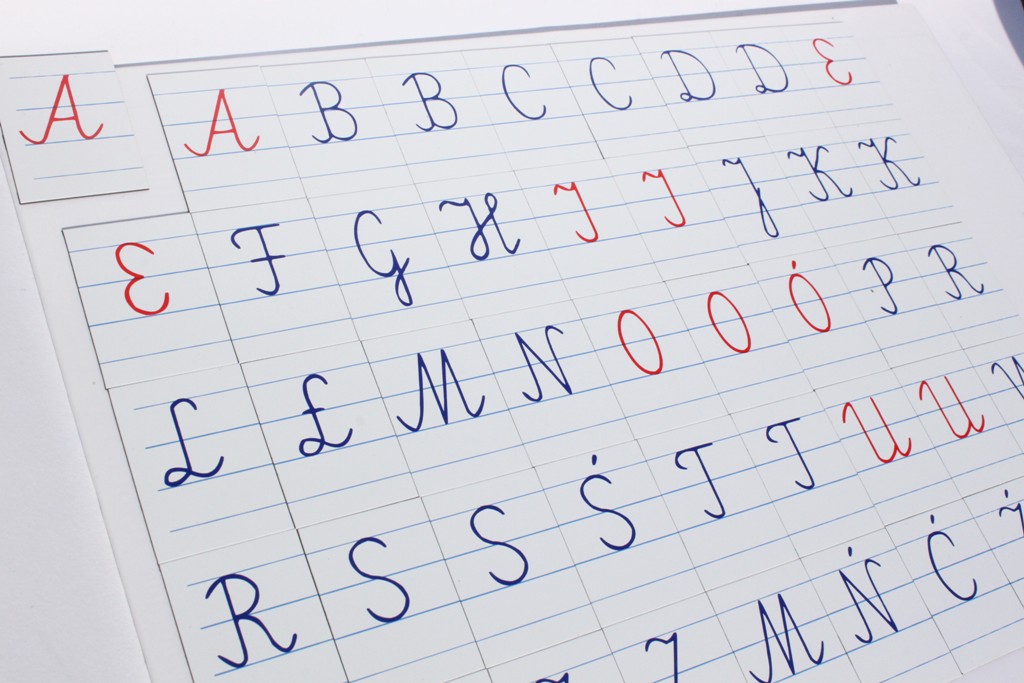 A A B B C C D D E
E F G H I I J K K
L Ł M N O O Ó P R
R S S Ś T T U U
M Ń Ć